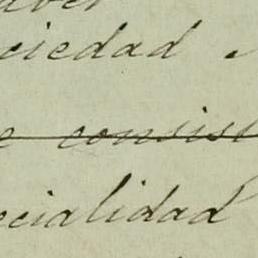 aber
ciedad
e consist
ecialidad